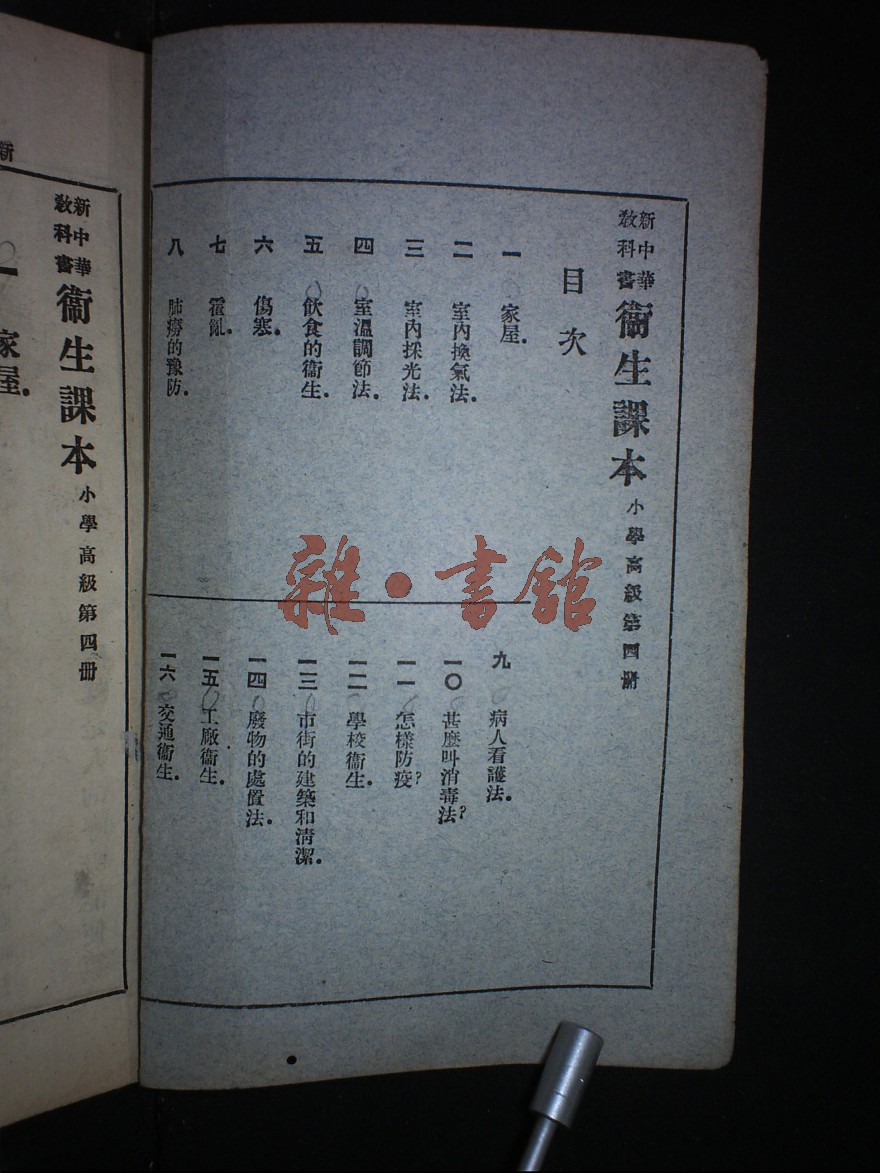 新中華
教科書
衞生課本 小學高級第四冊
目次
一 家屋.
二 室內換氣法.
三 室內採光法.
四 室溫調節法.
五 飲食的衞生.
六 傷寒.
七 霍亂.
八 肺癆的豫防.
九 病人看護法.
一〇 甚麼叫消毒法?
一一 怎樣防疫?
一二 學校衞生.
一三 市街的建築和清潔.
一四 廢物的處置法.
一五 工廠衞生.
一六 交通衞生.
雜·書館
新中華
教科書
衞生課本 小學高級第四冊
一 家屋.
新